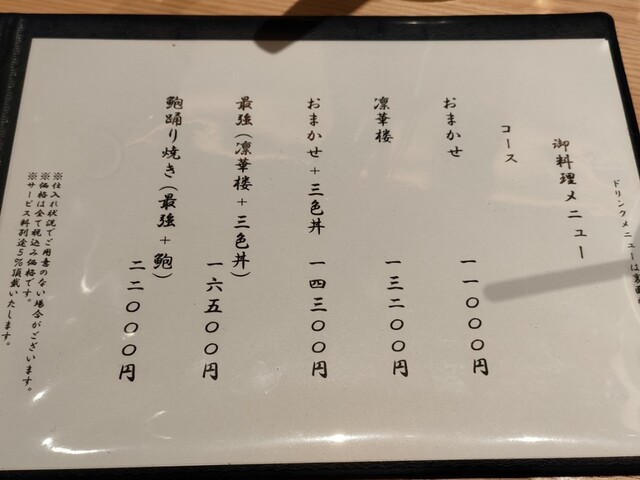 ドリンクメニューは裏面
御料理メニュー
コース
おまかせ 一一〇〇〇円
凛華楼 一三二〇〇円
おまかせ+三色丼 一四三〇〇円
最強(凛華楼+三色丼) 一六五〇〇円
鮑踊り焼き(最強+鮑) 二二〇〇〇円
※仕入れ状況でご用意のない場合がございます。
※価格は全て税込み価格です。
※サービス料別途5%頂戴いたします。